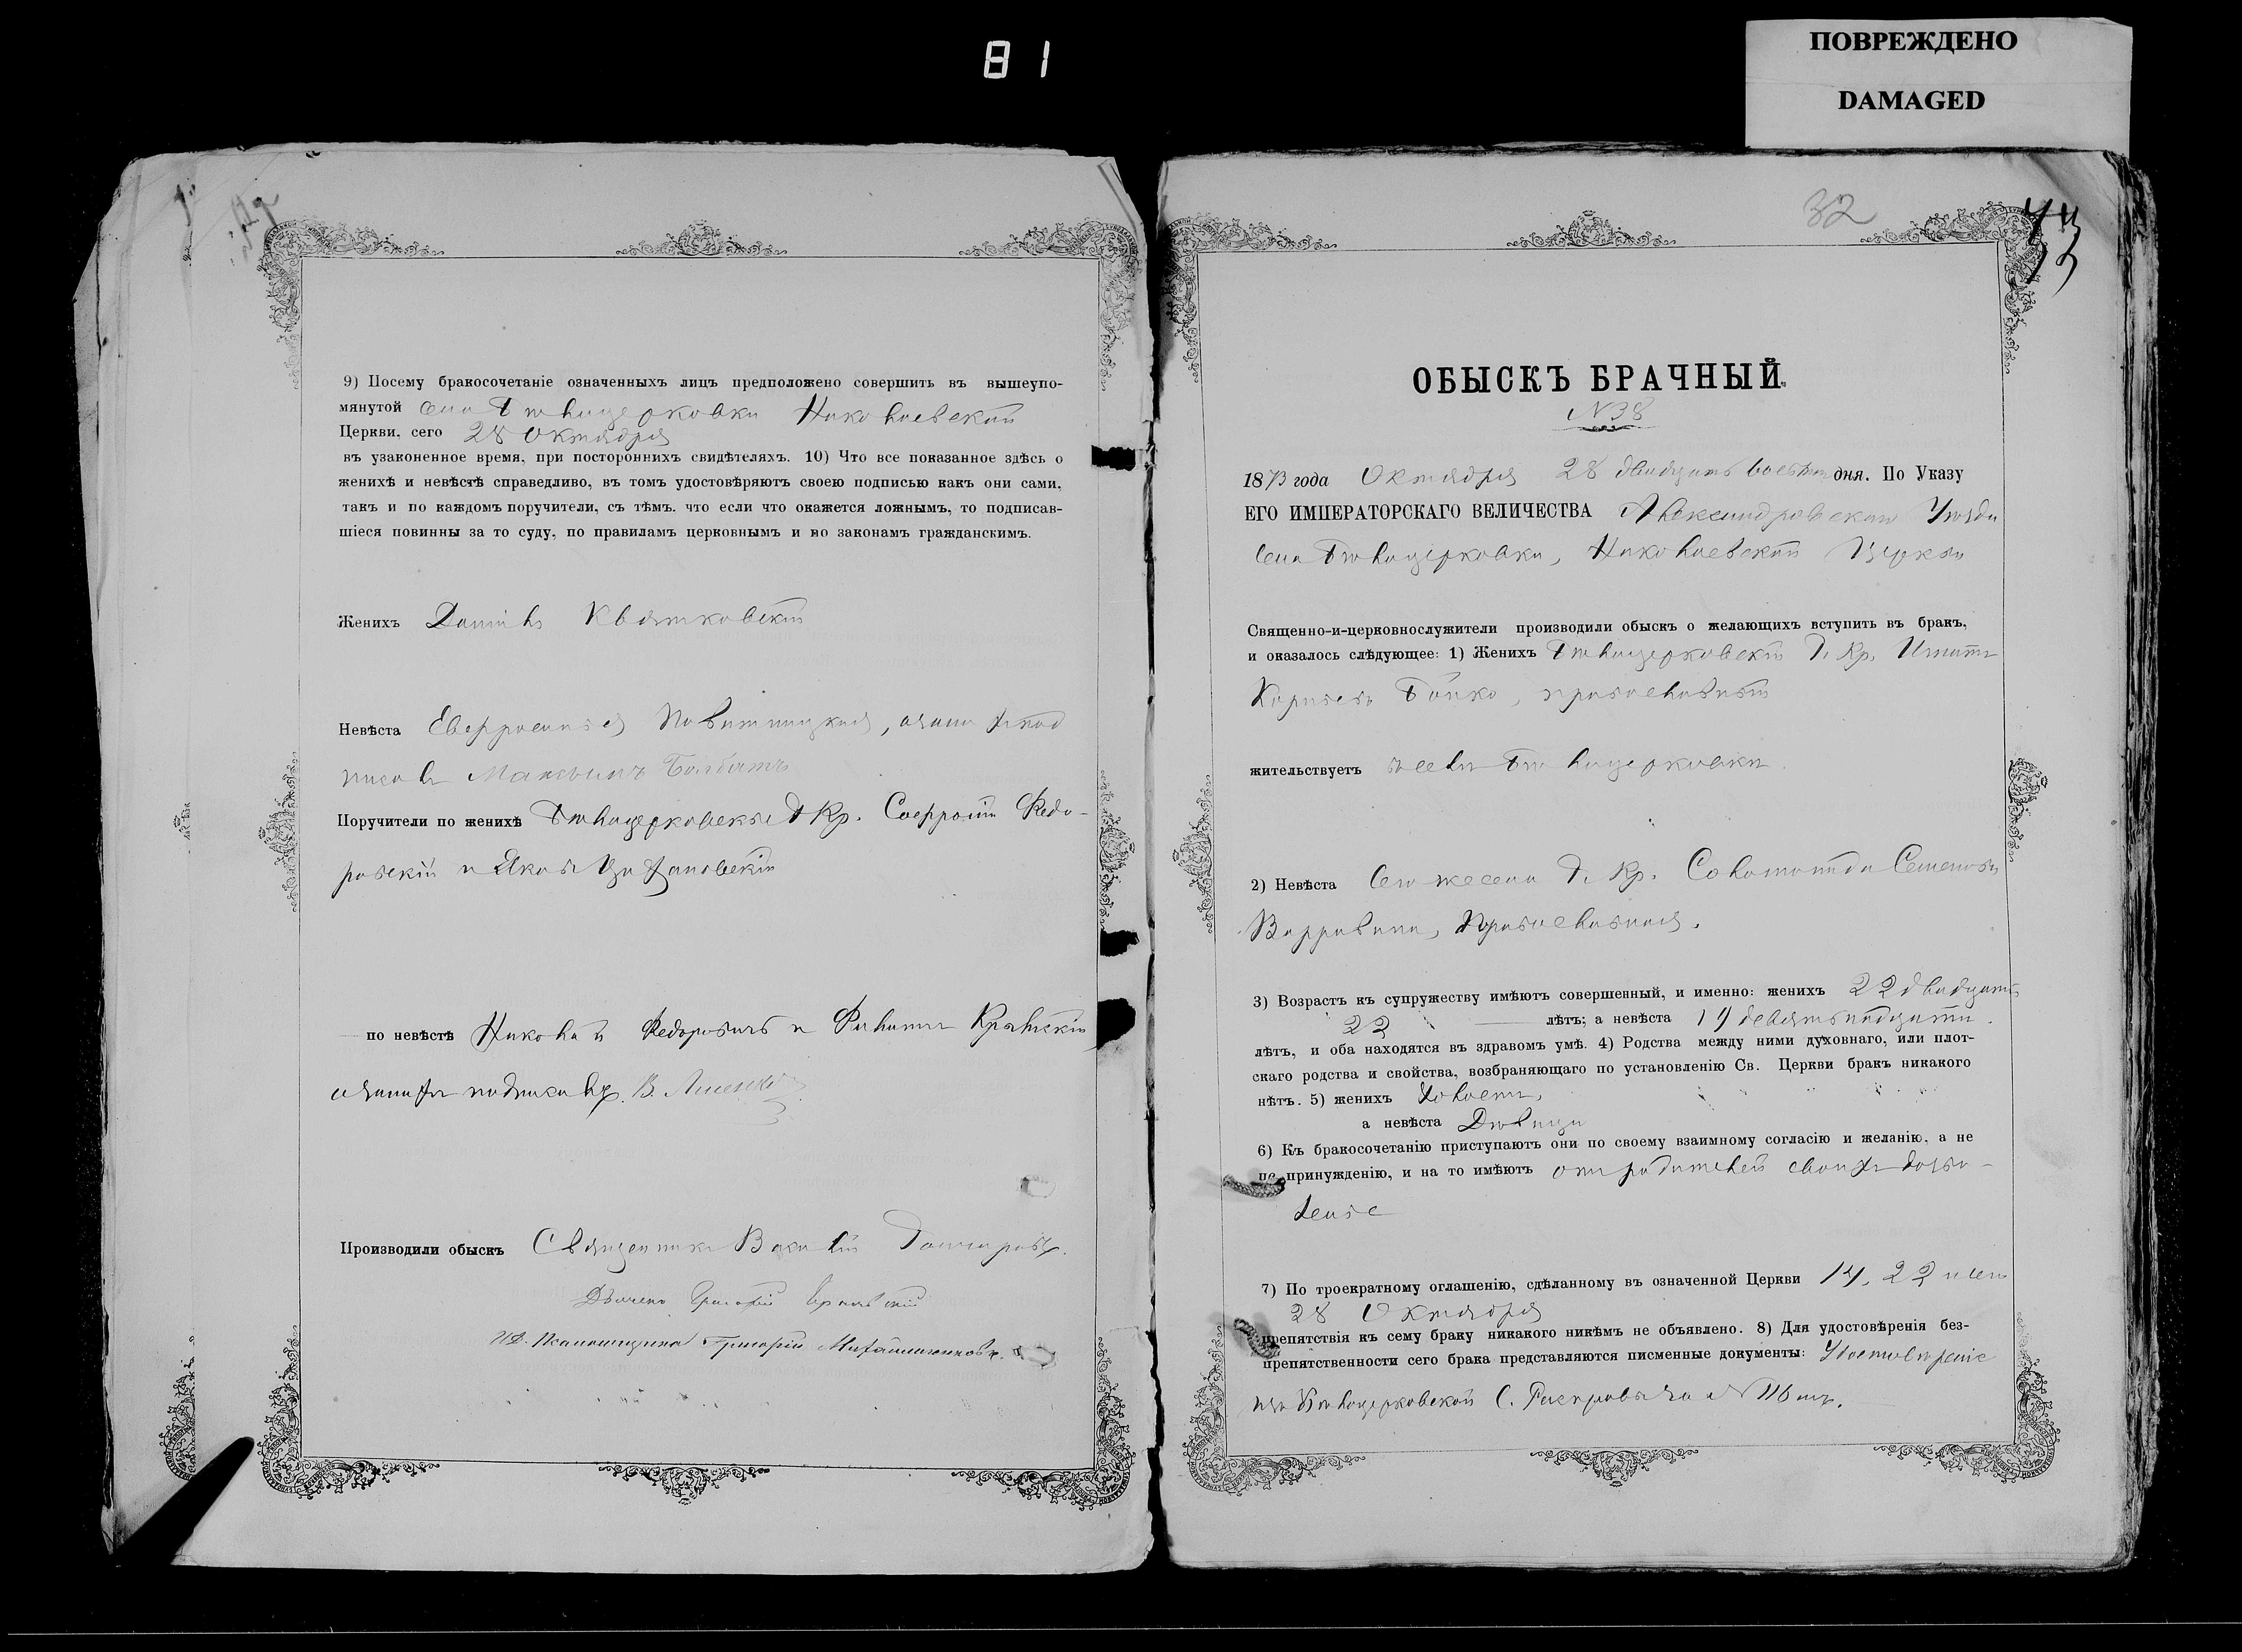 81
ПОВРЕЖДЕНО
DAMAGED
9) Посему бракосочетаніе означенныхъ лицъ предположено совершить въ вышеупо-
мянутой села Бѣлацерковки Николаевской
Церкви, сего 28 Октября
въ узаконенное время, при постороннихъ свидѣтеляхъ. 10) Что все показанное здѣсь о
женихѣ и невѣстѣ справедливо, въ томъ удостовѣряютъ своею подписью какъ они сами,
такъ и по каждомъ поручители, съ тѣмъ, что если что окажется ложнымъ, то подписав-
шіеся повинны за то суду, по правиламъ церковнымъ и по законамъ гражданскимъ.
Женихъ Даніилъ Квятковскій
Невѣста Евфросинія
Максимъ
Поручители по женихѣ Бѣлацерковскіе Кр. Софроній Федо-
ровскій и Яковъ
по невѣстѣ Николай Федоровичъ и Филиппъ
Производили обыскъ Священникъ
Григорій
ИД. Псаломщика Григорій
32
ОБЫСКЪ БРАЧНЫЙ.
N 38
1873 года Октября 28 двадцать восьмого дня. По Указу
ЕГО ИМПЕРАТОРСКАГО ВЕЛИЧЕСТВА Александровскаго Уѣзда
села Бѣлацерковки, Николаевской Церкви
Священно-и-церковнослужители производили обыскъ о желающихъ вступить въ бракъ,
и оказалось слѣдующее: 1) Женихъ Бѣлацерковскій Г. Кр. Игнатъ
Бойко, православный
жительствуетъ въ селѣ Бѣлацерковкѣ
2) Невѣста Того же села Г. Кр. Соломонида Семенова
Православная.
3) Возрастъ къ супружеству имѣютъ совершенный, и именно: женихъ 22 двадцать
22 лѣтъ; а невѣста 19 девятьнадцати
лѣтъ, и оба находятся въ здравомъ умѣ. 4) Родства между ними духовнаго, или плот-
скаго родства и свойства, возбраняющаго по установленію Св. Церкви бракъ никакого
нѣтъ. 5) женихъ Холостъ,
а невѣста Дѣвица
6) Къ бракосочетанію приступаютъ они по своему взаимному согласію и желанію, а не
по принужденію, и на то имѣютъ отъ родителей своихъ дозво-
леніе
7) По троекратному оглашенію, сдѣланному въ означенной Церкви 14, 22 и сего
28 Октября
препятствія къ сему браку никакого никѣмъ не объявлено. 8) Для удостовѣренія без-
препятственности сего брака представляются писменные документы: Удостовѣреніе
изъ Бѣлацерковской С. Расправы за N 116 мъ.